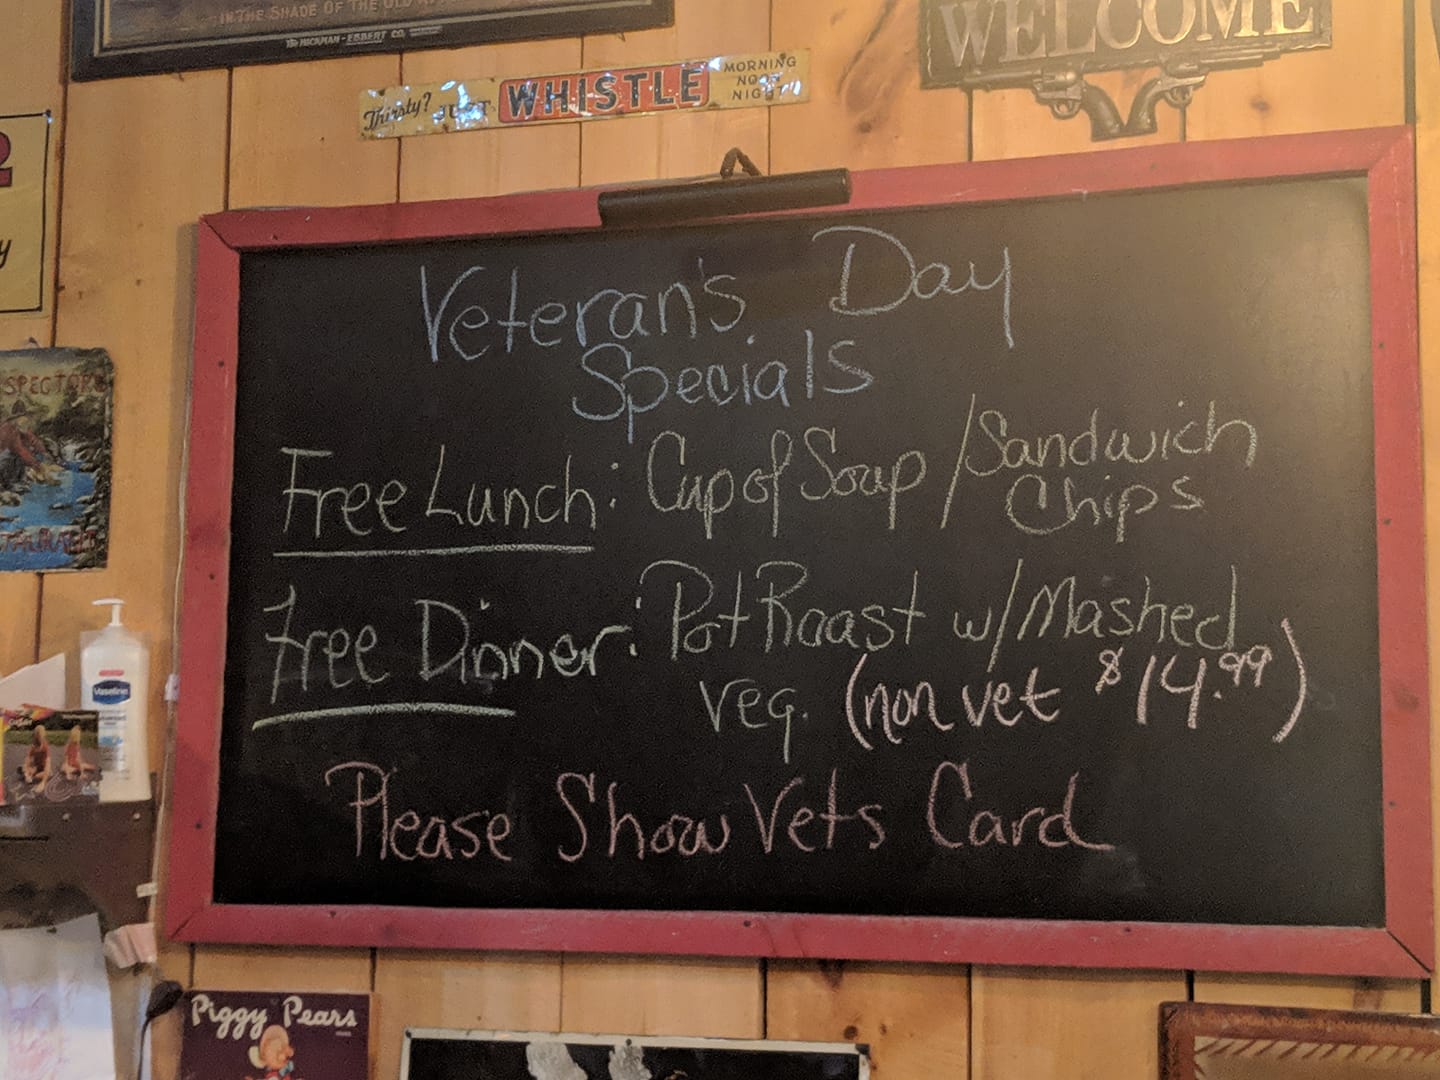 IN THE SHADE OF THE OLD
THE HICKMAN-EBBERT CO.
WELCOME
Thirsty? JUST WHISTLE MORNING
NOON
NIGHT
Veteran's Day
Specials
Free Lunch: Cup of Soup / Sandwich
Chips
Free Dinner: Pot Roast w/ Mashed
veg. (non vet $14.99)
Please Show Vets Card
Vaseline
Piggy Pears